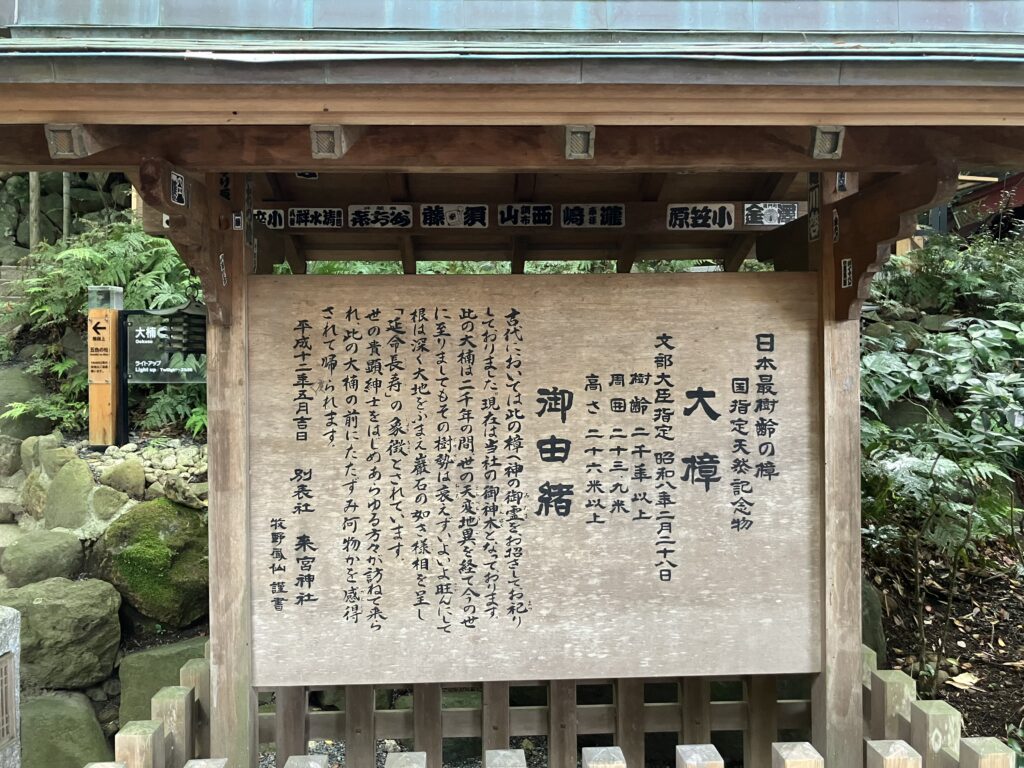 日本最樹齢の樟
国指定天然記念物
大樟
文部大臣指定 昭和八年二月二十八日
樹齢 二千年以上
周囲 二十三、九米
高さ 二十六米以上
御由緒
古代においては此の樟へ神の御霊をお招きしてお祀り
しておりました。現在は当社の御神木となっております。
此の大楠は二千年の間、世の天変地異を経て今の世
に至りましてもその樹勢は衰えず、いよいよ旺んにして
根は深く大地をふまえ巌石の如き様相を呈し
「延命長寿」の象徴とされています。
世の貴顕紳士をはじめあらゆる方々が訪ねて来ら
れ、此の大楠の前にたたずみ何物かを感得
されて帰られます。
平成十二年五月吉日 別表社 来宮神社
牧野鳳仙 謹書
小笠原
瀧崎
西山
須藤
清水群
大楠
Ookusu
ライトアップ
Light up
五色の杜